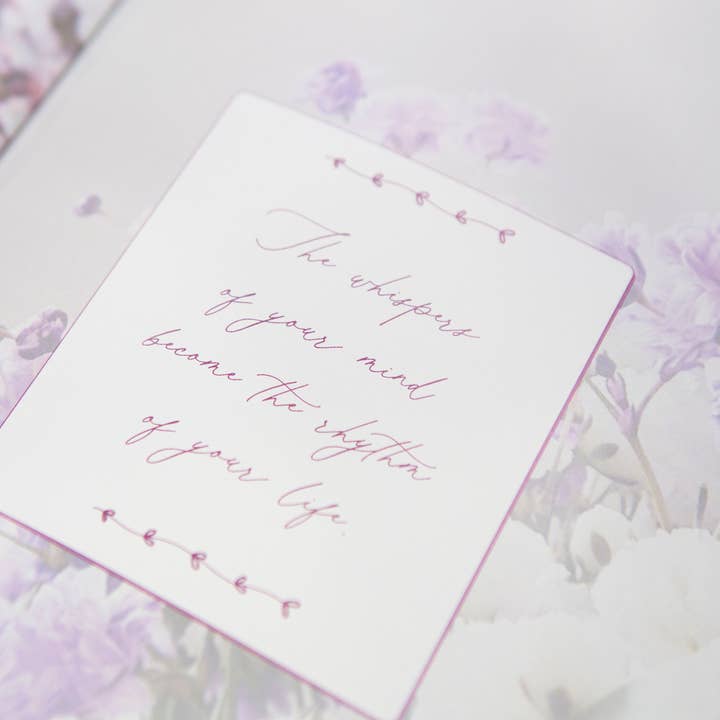 The whispers
of your mind
become the rhythm
of your life.